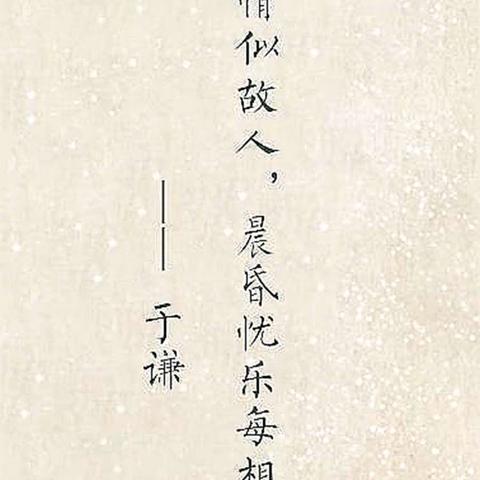 情似故人，晨昏忧乐每相
——于谦